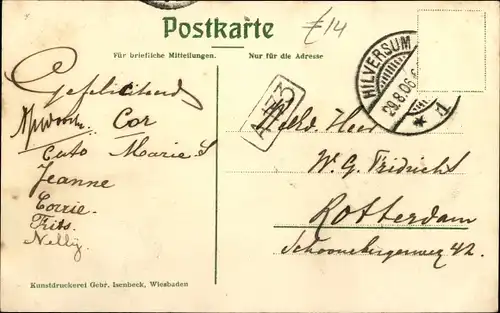 Postkarte
£14
Für briefliche Mitteilungen.
Nur für die Adresse
HILVERSUM
29.8.06.
* 1
Gefeliciteerd
Cor
Cato Marie S
Jeanne
Corrie.
Frits.
Nelly.
WelEd. Heer
W. G. Fridrichs
Rotterdam
Schoonebergerweg 42.
Kunstdruckerei Gebr. Isenbeck, Wiesbaden